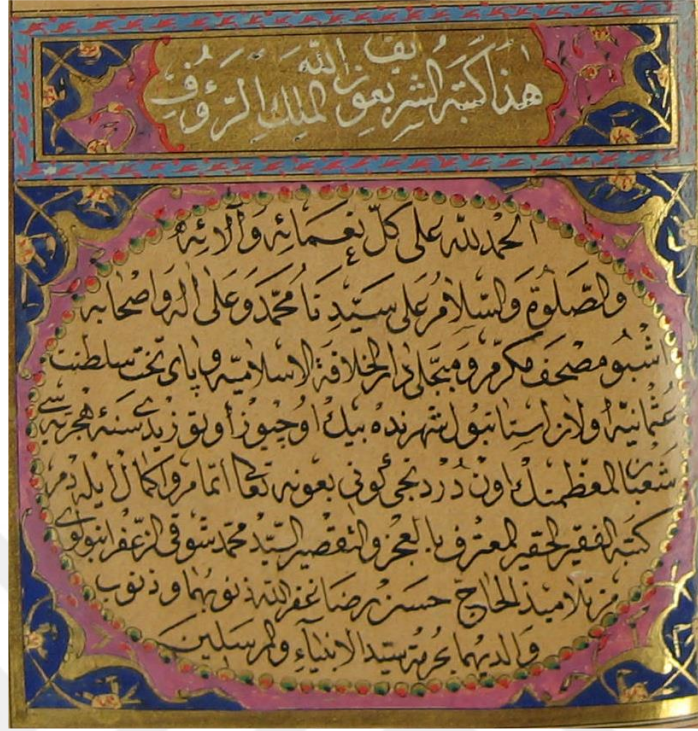 هذا كتبة الشريف بعون الله الملك الرؤف
الحمد لله على كل نعمائه وآلائه
والصلوة والسلام على سيدنا محمد وعلى آله واصحابه
اشبو مصحف مكرم ومبجلى دار الخلافة الاسلاميه وپاى تخت سلطنت
عثمانيه اولان استانبول شهرنده بيك اوچيوز اوتوز يدى سنۀ هجريه سى
شعبان المعظمنك اون دردنجى گونى بعونه تعالى اتمام واكمال ايله دم
كتبه الفقير الحقير المعترف بالعجز والتقصير السيد محمد شوقى الزعفرانبولوى
من تلاميذ الحاج حسن رضا غفر الله ذنوبهما وذنوب
والديهما بحرمة سيد الانبياء والمرسلين